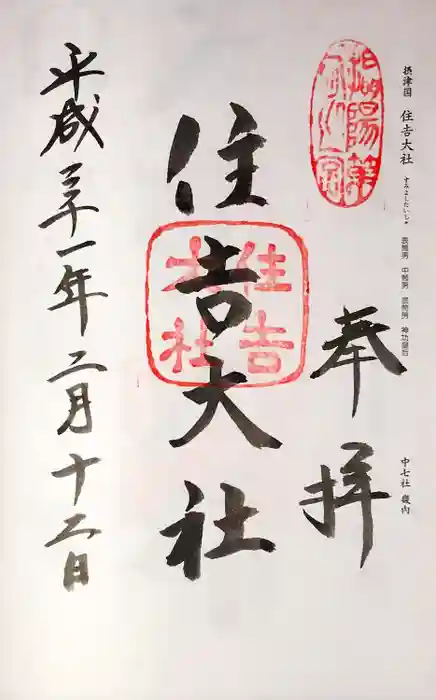 摂津国 住吉大社 すみよしたいしゃ 表筒男 中筒男 底筒男 神功皇后
中七社 畿内
奉拝
住吉大社
住吉大社
平成三十一年二月十二日